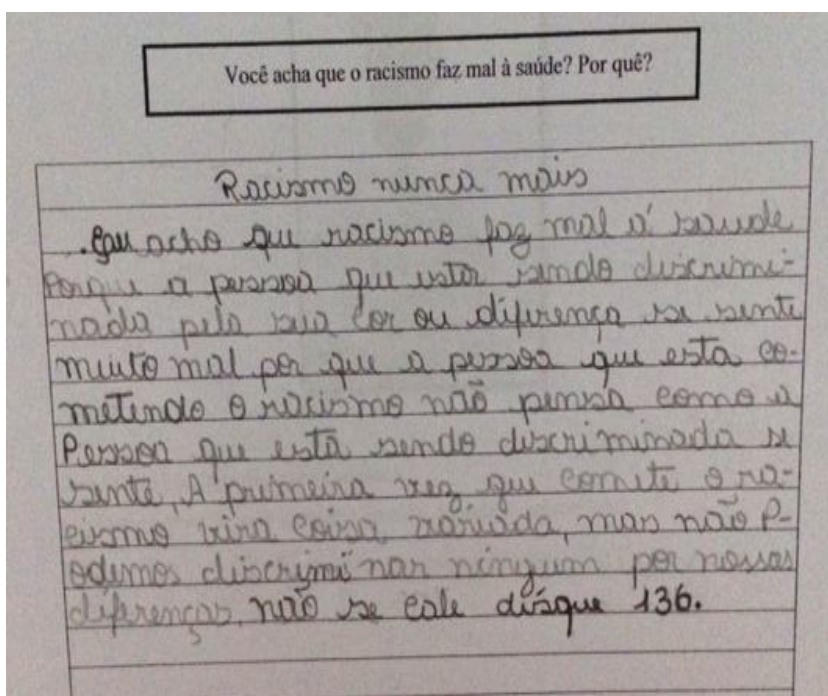 Você acha que o racismo faz mal à saúde? Por quê?
Racismo nunca mais
Eau acho que racismo faz mal a' saude
Porque a pessoa que estar sendo discrimi-
nada pela sua cor ou diferença se sente
muito mal por que a pessoa que esta co-
metendo o racismo não pensa como a
Pessoa que está sendo discriminada se
sente, A primeira vez que comete o ra-
cismo vira coisa , mas não P-
odemos discriminar ninguem por nossas
diferenças, não se cale disque 136.